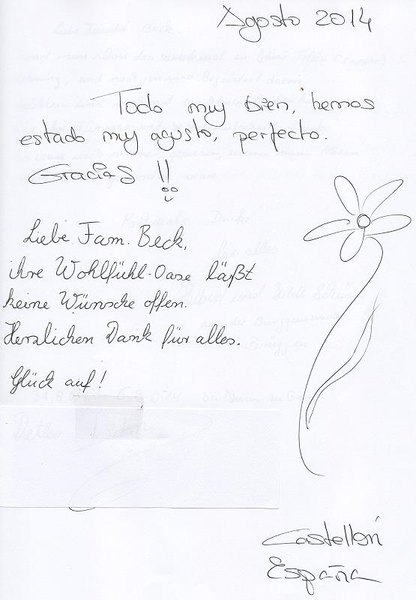 Agosto 2014
Todo muy bien, hemos
estado muy agusto, perfecto.
Gracias !!
Liebe Fam. Beck,
ihre Wohlfühl-Oase läßt
keine Wünsche offen.
Herzlichen Dank für alles.
Glück auf!
Castellón
España